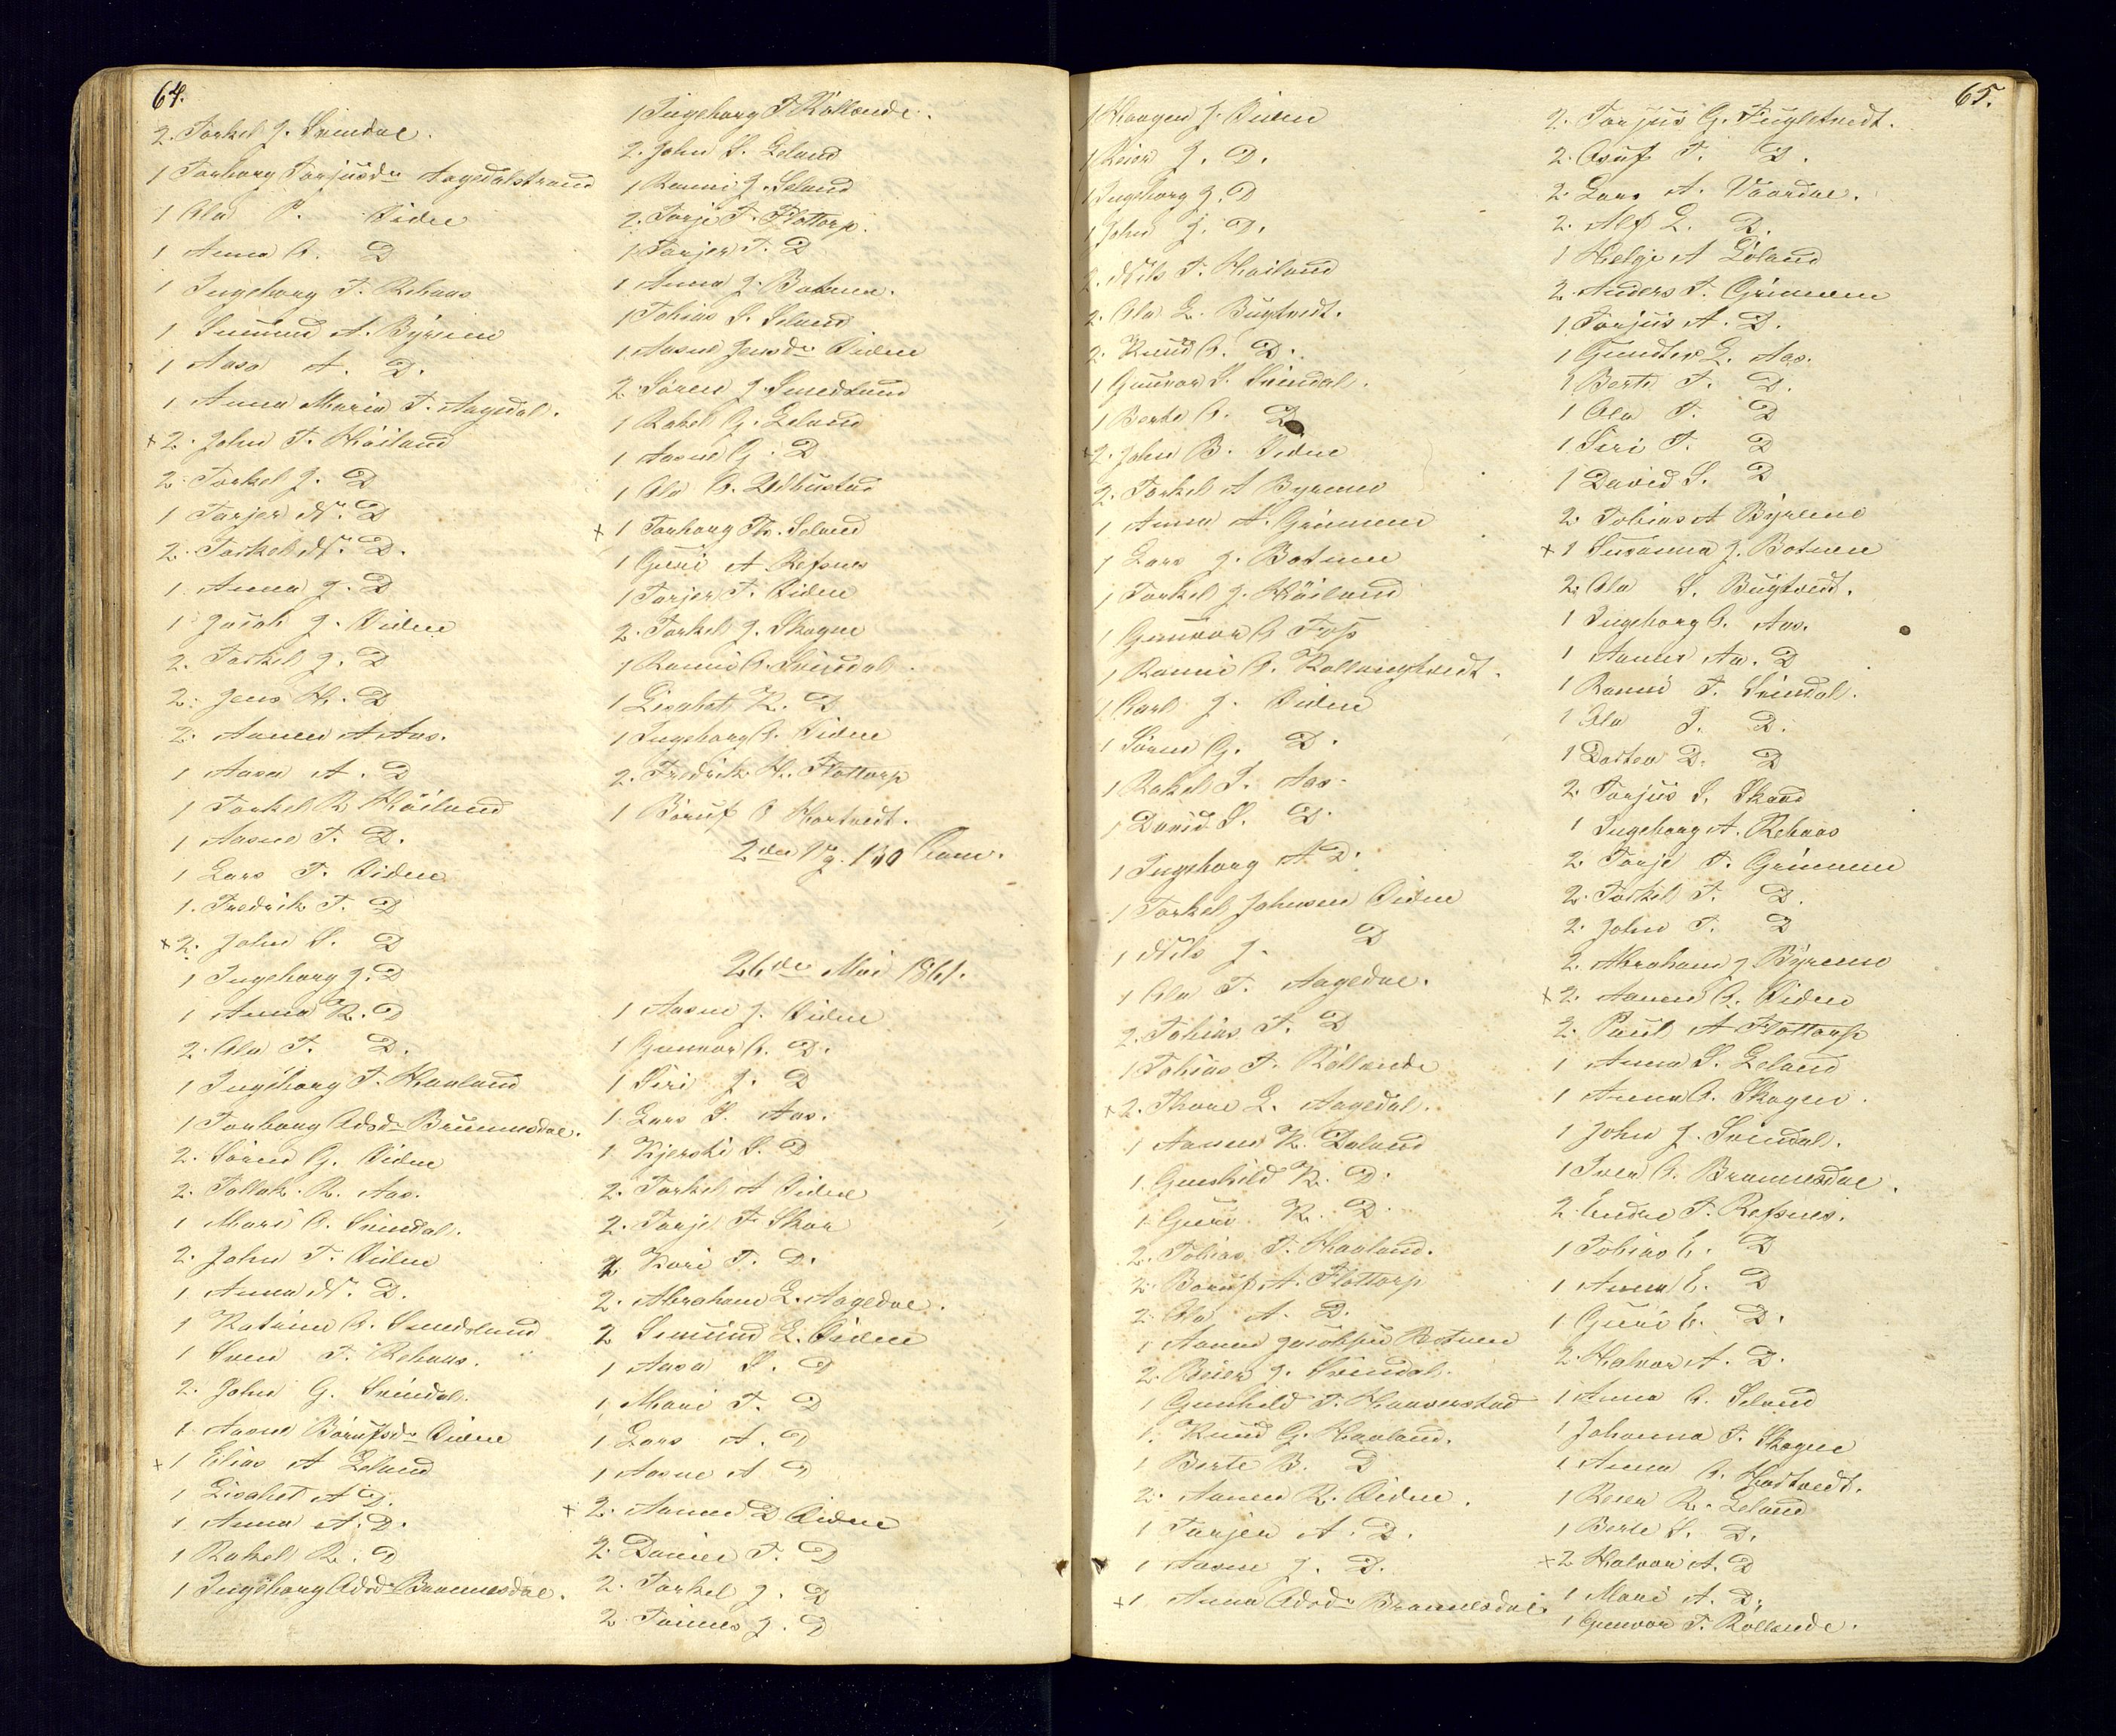 64.
2. Torkel J. Svindal.
1 Torborg Torjusdr Aagedalstrand
1 Ola P. Eidne
1 Anna O. D
1 Ingeborg T. Rehaas
1 Senmund A. Byrem
1 Aasa A. D.
1 Anna Maria T. Aagedal.
x 2. John T. Høiland
2. Torkel J. D
1 Tarjer N. D
2. Torkel N. D.
1 Anna J. D
1 Jacob J. Eidne
2. Torkel J. D
2. Jens H. D
2. Aanen A Aas.
1 Aasa A. D
1 Torkel R Høiland
1 Aasne T. D.
1 Lars T. Eidne
1. Fredrik T. D
x 2. John S. D
1 Ingeborg J. D
1 Anna R. D
2. Ola T. D.
1 Ingeborg T. Haaland
1 Torborg Adsdr Brunnesdal.
2. Søren G. Eidne
2. Tollak R. Aas.
1 Mari O. Svindal.
2. John T. Eidne
1 Anna N. D.
1 Katrine O. Smedslund
1 Sven T. Rehaas.
2. John G. Svindal.
1 Aasne Bórufsdr Eidne
x 1 Elias A Leland
1 Lisabet A D.
1 Anna A. D.
1 Rakel R. D
1 Ingeborg Adsdr Brunnesdal.
1 Ingeborg T. Røllende.
2. John S. Leland
1 Ranni J. Seland
2. Torje T. Flottorp.
1 Tarjer T. D
1 Anna J. Botnen.
1 Tobias S. Seland
1 Aasne Jensdr Eidne
2 Søren J. Smedslund
1 Rakel G. Leland
1 Aasne G. D
1 Ola O. Ubbustad
x 1 Torborg Th. Seland
1 Guri A. Refsnes
1 Tarjer T. Eidne
2. Torkel J. Skogen
1 Ranni O. Svindal.
1 Lisabet K. D
1 Ingeborg O. Eidne
2. Fredrik H. Flottorp
1 Boruf O Hortvedt.
2den Vg. 130 Com.
26de Mai 1861.
1 Aasne J. Eidne
1 Gunvor O. D.
1 Siri J. D
1 Lars S. Aas.
1 Kjersti S. D
2. Torkel A Eidne
2. Torje T. Skar
1 Kari T. D.
2. Abraham L. Aagedal.
2 Semund L. Eidne
1 Aasa S. D
1 Mari T. D
1 Lars A. D
1 Aasne A D
x 2. Aanen D Eidne
2. Daniel T. D
2. Torkel J. D
2. Tønnes J. D
65.
1 Haagen J. Eidne
1 Reier J. D.
1 Ingeborg J. D
1 John J. D.
2. Nils T. Høiland
2. Ola L. Bugtvedt.
2. Knud O. D.
1 Gunvor S. Svindal.
1 Berte O. D
x 2. John B. Eidne
2. Torkel A Byremo
1 Anna A. Grimnen
1 Lars J. Botnen
1 Torkel J. Høiland
1 Gunvor O Foss
1 Ranni O. Kollungtvedt.
1 Carl J. Eidne
1 Søren G. D.
1 Rakel T. Aas.
1 David S. D.
1 Ingeborg A D.
1 Torkel Johnsen Eidne
1 Nils J. D
1 Ola T. Aagedal.
2. Tobias T. D
1 Tobias T. Røllende
x 2. Thore L. Aagedal.
1 Aanen K. Leland
1 Gunhild K. D.
1 Guri K. D.
2. Tobias T. Haaland.
2. Boruf A. Flottorp
2. Ola A. D.
1 Aanen Jacobsen Botnen
2. Reier J. Svindal.
1 Gunhild T. Haaverstad
1. Knud G. Haaland.
1 Berte B. D
2. Aanen R. Eidne.
1 Tarjer A. D.
1 Aasne J. D.
x 1 Anna Adsdr Brunnesdal.
2. Tarjus G. Fugletvedt.
2. Asuf T. D.
2. Lars A. Vaardal.
2. Alf L. D.
1 Helje A Løland
2. Anders T. Grimnen
1 Tarjus A. D.
1 Gundter L. Aas.
1 Berte T. D.
1 Ola T. D
1 Siri T. D
1 David S. D
2. Tobias A Byremo
x 1 Susanna J. Botnen
2. Ola S. Bugtvedt.
1 Ingeborg O. Aas.
1 Aanen Aa. D
1 Ranni T. Svindal.
1 Ola T. D.
1 Dorthea D. D
2. Tarjus S. Skaar
1 Ingeborg A. Rehaas
2. Torje T. Grimnen
2. Torkel T. D.
2. John T. D
2. Abraham J Byremo
x 2. Aanen O. Eidne
2. Paul A Flottorp
1 Anna S. Leland
1 Anna O. Skogen.
1 John J. Svindal.
1 Iver O. Brunnesdal.
2 Endre T. Refsnes.
1 Tobias E. D
1 Anna E. D
1 Guri E. D.
2. Halvor A. D.
1 Anna O. Seland
1 Johanna T. Skogen
1 Anna O. Hortvedt.
1 Reier R. Leland
1 Berte S. D.
x 2 Halvor A. D
1 Mari A. D.
1 Gunvor T. Røllende.